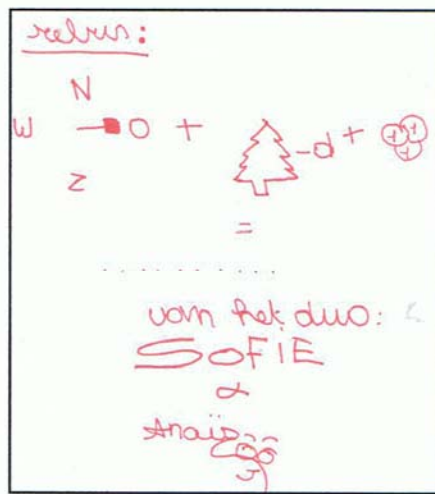 rebus:
N
W O + -d + 1 1 1
Z
=
..........
van het duo:
SOFIE
&
Anaïs